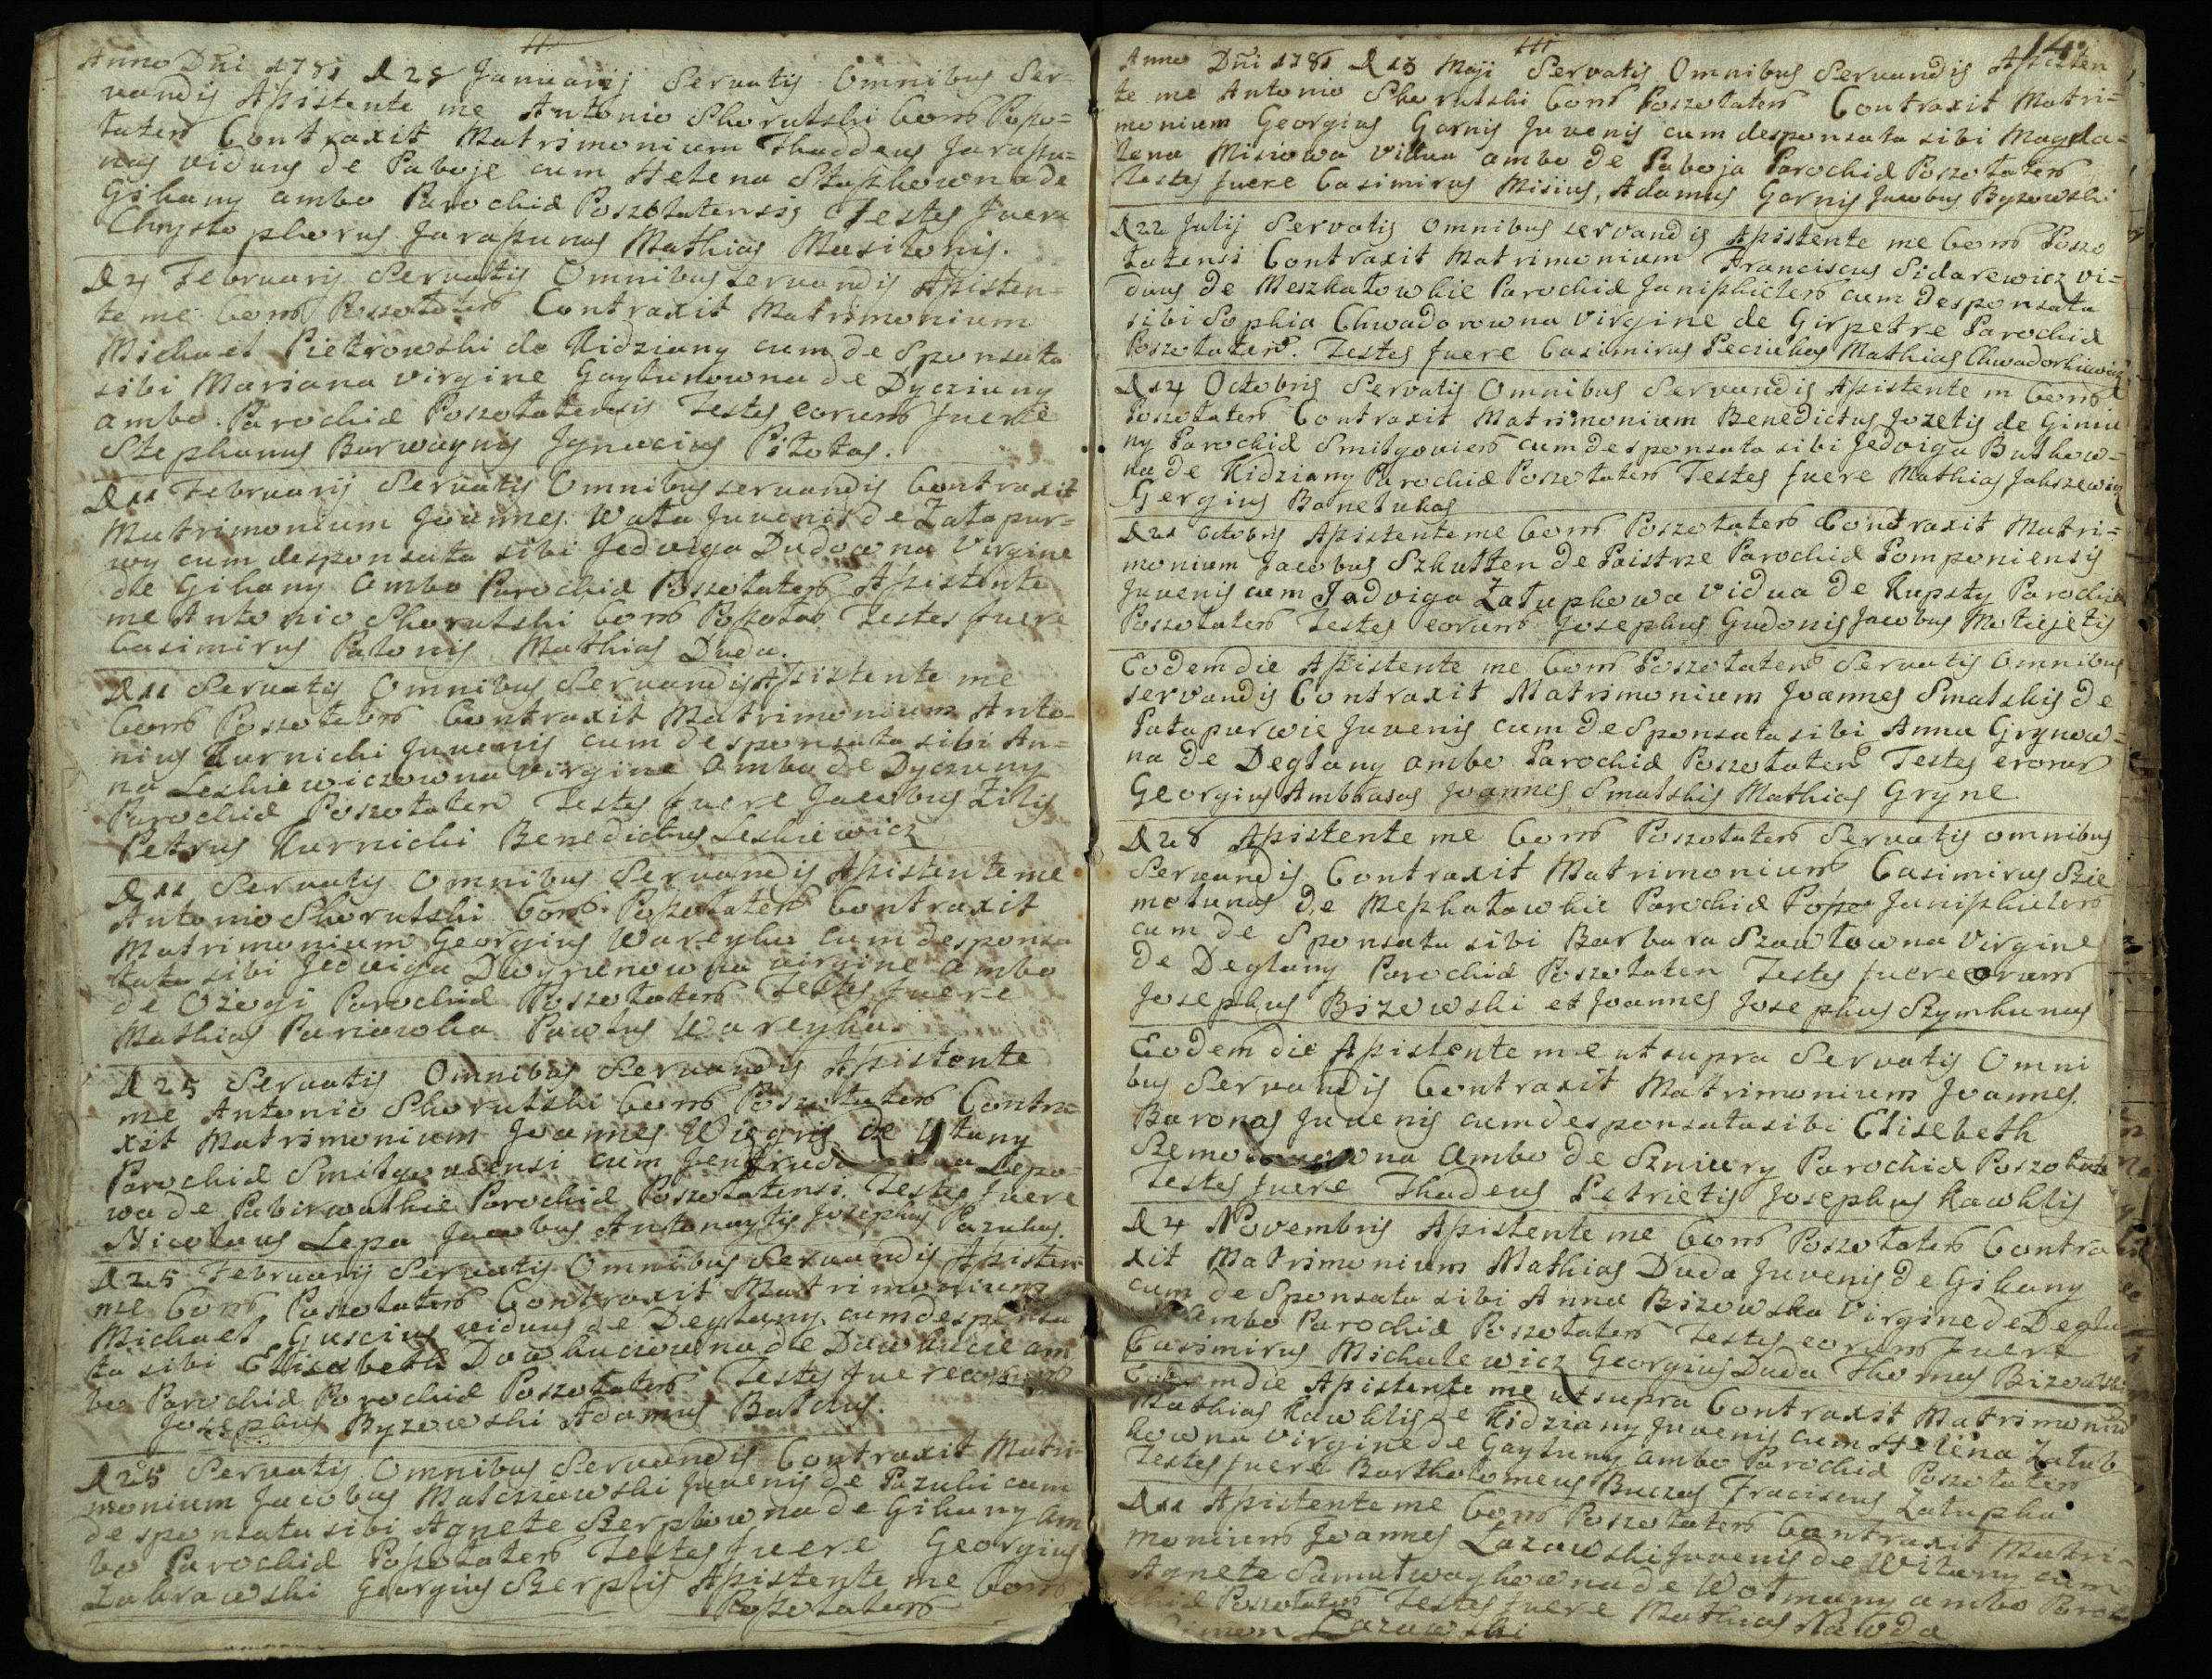 Anno Dñi 1781 d 28 Januarij Servatis Omnibus Ser-
vandis Assistente me Antonio Skorulski Com Posso=
laten Contraxit Matrimonium Thaddeus Jarassu=
nas viduus de Paboje cum Helena Stashkowna de
Gikany ambo Parochiæ Poszolatensis Testes fuere
Chrystophorus Jarassunas Mathias Masilonis.
d 4 Februarij Servatis Omnibus servandis Assisten=
te me Com Poszolaten Contraxit Matrimonium
Michael Pietrowski de Kidziany cum de Sponsata
sibi Mariana virgine Gaylunowna de Dyczuny
ambo Parochiæ Poszolatensis Testes eorum fuere
Stephanus Barwaynis Jgnacius Pilotas.
d 11 Februarij Servatis Omnibus servandis Contraxit
Matrimonium Joannes Wata Juvenis de Zatapur=
wy cum desponsata sibi Jedviga Dudowna Virgine
de Gikany Ambo Parochiæ Poszolaten Assistente
me Antonio Skorulski Com Possolas Testes fuere
Casimirus Patonis Mathias Duda.
d 11 Servatis Omnibus Servandis Assistente me
Com Poszolaten Contraxit Matrimonium Anto-
nius Kurnicki Juvenis cum desponsata sibi An=
na Leskiewiczowna virgine Ambo de Dyczuny
Parochiæ Poszolaten Testes fuere Jacobus Zilis
Petrus Kurnicki Benedictus Leskiewicz
d 11 Servatis Omnibus Servandis Assistente me
Antonio Skorulski Com Possolaten Contraxit
Matrimonium Georgius Wareyka cum desponsa
tata sibi Jedviga Dwyrenowna virgine ambo
de Ozogi Parochiæ Poszolaten Testes fuere
Mathias Paniowka Pawlus Wareyka.
d 25 Servatis Omnibus Servandis Assistente
me Antonio Skorulski Com Poszolaten Contra=
xit Matrimonium Joannes Wiegris de Ytany
Parochiæ Smilgoviensi cum Lepo=
wa de Pabirwalkie Parochiæ Poszolatensi. Testes fuere
Nicolaus Lepa Jacobus Antanaytis Josephus Pazukas.
d 25 Februarij Servatis Omnibus Servandis Assisten
me Com Poszolaten Contraxit Matrimonium
Michael Guscius viduus de Deglany cum desponsa
ta sibi Elisabeth Dawkuciowna de Dawkucie am
bo Parochiæ Parochiæ Poszolaten Testes fuere eorum
Josephus Byzowski Adamus Baldus.
d 25 Servatis Omnibus Servandis Contraxit Matri-
monium Jacobus Malczewski Juvenis de Pazuki cum
desponsata sibi Agnete Szerpkowna de Gikany am
bo Parochiæ Possolaten Testes fuere Georgius
Zabrawski Georgius Szerplis Assistente me Com
Possolaten
14.
Anno Dñi 1781 d 13 Maji Servatis Omnibus Servandis Assisten
te me Antonio Skorulski Com Poszolaten Contraxit Matri=
monium Georgius Garnis Juvenis cum desponsata sibi Magda=
lena Misiowa Vidua ambo de Paboja Parochiæ Poszolaten
Testes fuere Casimirus Misius, Adamus Garnis Jacobus Byzowski
d 22 Julij Servatis omnibus servandis Assistente me Com Poszo
latensi Contraxit Matrimonium Franciscus Sidarewicz vi=
duus de Meszkalowkie Parochiæ Janiszkielen cum desponsata
sibi Sophia Chwadorowna Virgine de Girpetre Parochiæ
Poszolaten. Testes fuere Casimirus Peciukas Mathias Chwadorkiewicz
d 14 Octobris Servatis Omnibus Servandis Assistente m Com
Poszolaten Contraxit Matrimonium Benedictus Jozetis de Giniu
ny Parochiæ Smilgovien cum desponsata sibi Jedviga Butkow=
na de Kidziany Parochiæ Poszolaten Testes fuere Mathias Jakszewicz
Gergius Banelukas
d 21 Octobris Assistente me Com Poszolaten Contraxit Matri=
monium Jacobus Szkutten de Paistrze Parochiæ Pomponiensis
Juvenis cum Jadviga Zalupkowa vidua de Kupsty Parochiæ
Poszolaten Testes eorum Josephus Gudonis Jacobus Motiejetis
Eodem die Assistente me Com Poszolaten Servatis Omnibus
servandis Contraxit Matrimonium Joannes Smalskis de
Patapurwie Juvenis cum de Sponsata sibi Anna Grynow=
na de Deglany ambo Parochiæ Poszolaten Testes erorum
Georgius Ambrasas Joannes Smalskis Mathias Gryne
d 28 Assistente me Com Poszolaten Servatis omnibus
Servandis Contraxit Matrimonium Casimirus Szie
motunas de Meszkalowkie Parochiæ Posso Janiszkielen
cum de Sponsata sibi Barbara Szawlowna Virgine
de Deglany Parochiæ Poszolaten Testes fuere eorum
Josephus Bizowski et Joannes Josephus Szymkunas
Eodem die Assistente me ut supra Servatis Omni
bus Servandis Contraxit Matrimonium Joannes
Baronas Juvenis cum desponsata sibi Elisebeth
Ambo de Szniury Parochiæ Poszolate
Testes fuere Thadeus Petrietis Josephus Kawklis
d 4 Novembris Assistente me Com Poszolaten Contra
xit Matrimonium Mathias Duda Juvenis de Gikany
cum de Sponsata sibi Anna Bizowska Virgine de Degla
Ambo Parochiæ Poszolaten Testes eorum fuere
Casimirus Michalewicz Georgius Duda Thomas Bizowski
Eodem die Assistente me ut supra Contraxit Matrimoniu
Mathias Kawklis de Kidziany Juvenis cum Helena Zalub
kowna virgine de Gayluny ambo Parochiæ Poszolaten
Testes fuere Bartholomeus Buczas Fraciscus Zalupka
d 11 Assistente me Com Poszolaten Contraxit Matri-
monium Joannes Lazawski Juvenis de Witany cum
Agnete Samulwaykowna de Wotmany ambo Paro
chiæ Poszolaten Testes fuere Mathias Nawda
Simon Lazawski